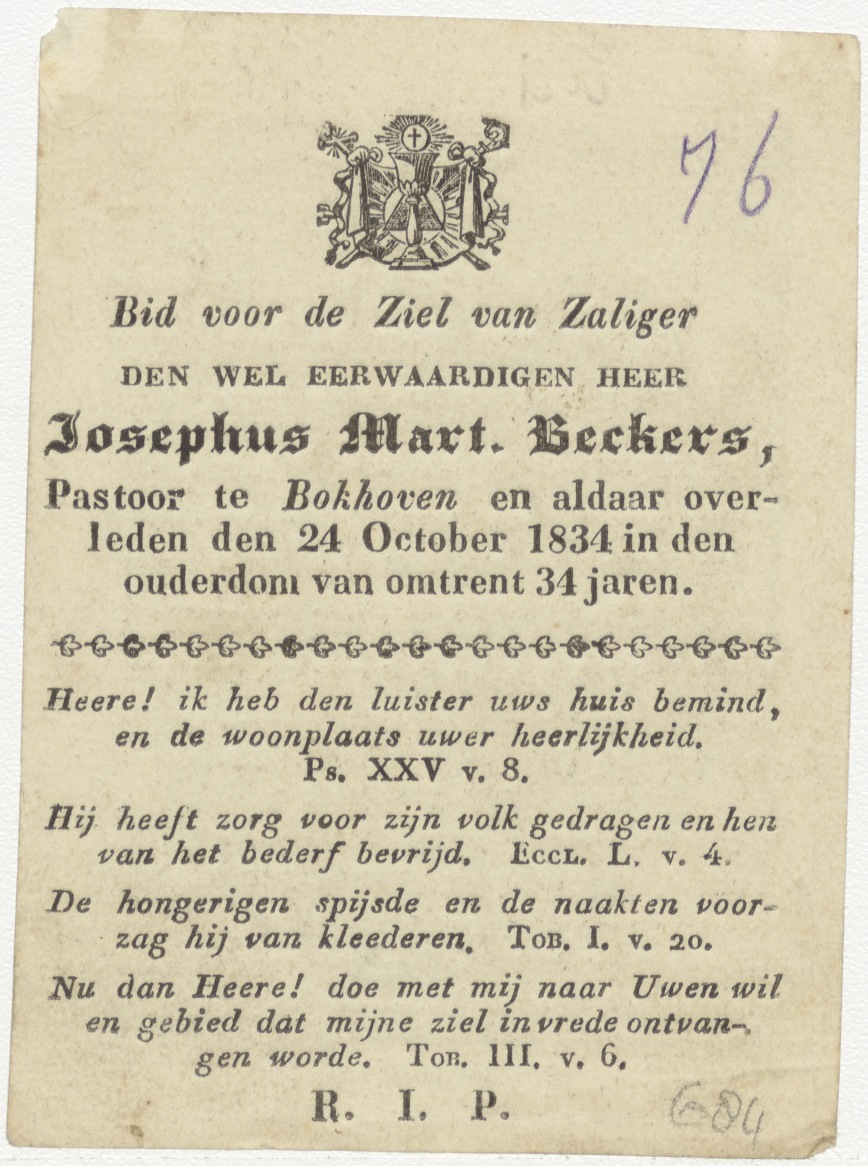 76
Bid voor de Ziel van Zaliger
DEN WEL EERWAARDIGEN HEER
Josephus Mart. Beckers,
Pastoor te Bokhoven en aldaar over-
leden den 24 October 1834 in den
ouderdom van omtrent 34 jaren.
Heere! ik heb den luister uws huis bemind,
en de woonplaats uwer heerlijkheid.
Ps. XXV v. 8.
Hij heeft zorg voor zijn volk gedragen en hen
van het bederf bevrijd. Eccl. L. v. 4.
De hongerigen spijsde en de naakten voor-
zag hij van kleederen. Tob. I. v. 20.
Nu dan Heere! doe met mij naar Uwen wil
en gebied dat mijne ziel in vrede ontvan-
gen worde. Tob. III. v. 6.
R. I. P.